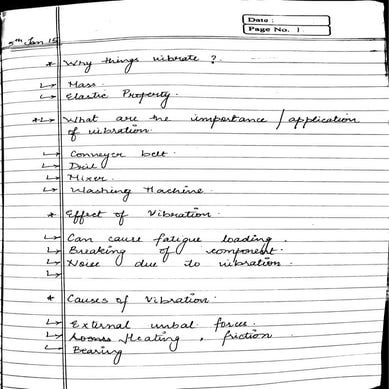 Date :
Page No. 1
5th Jan 15
* Why things vibrate ?
↳ Mass
↳ Elastic Property
* ↳ What are the importance / application
of vibration
↳ Conveyer belt
↳ Drill
↳ Mixer
↳ Washing Machine
* Effect of Vibration
↳ Can cause fatigue loading .
↳ Breaking of component
↳ Noise due to vibration
↳
* Causes of Vibration
↳ External unbal forces
↳ Heating , friction
↳ Bearing